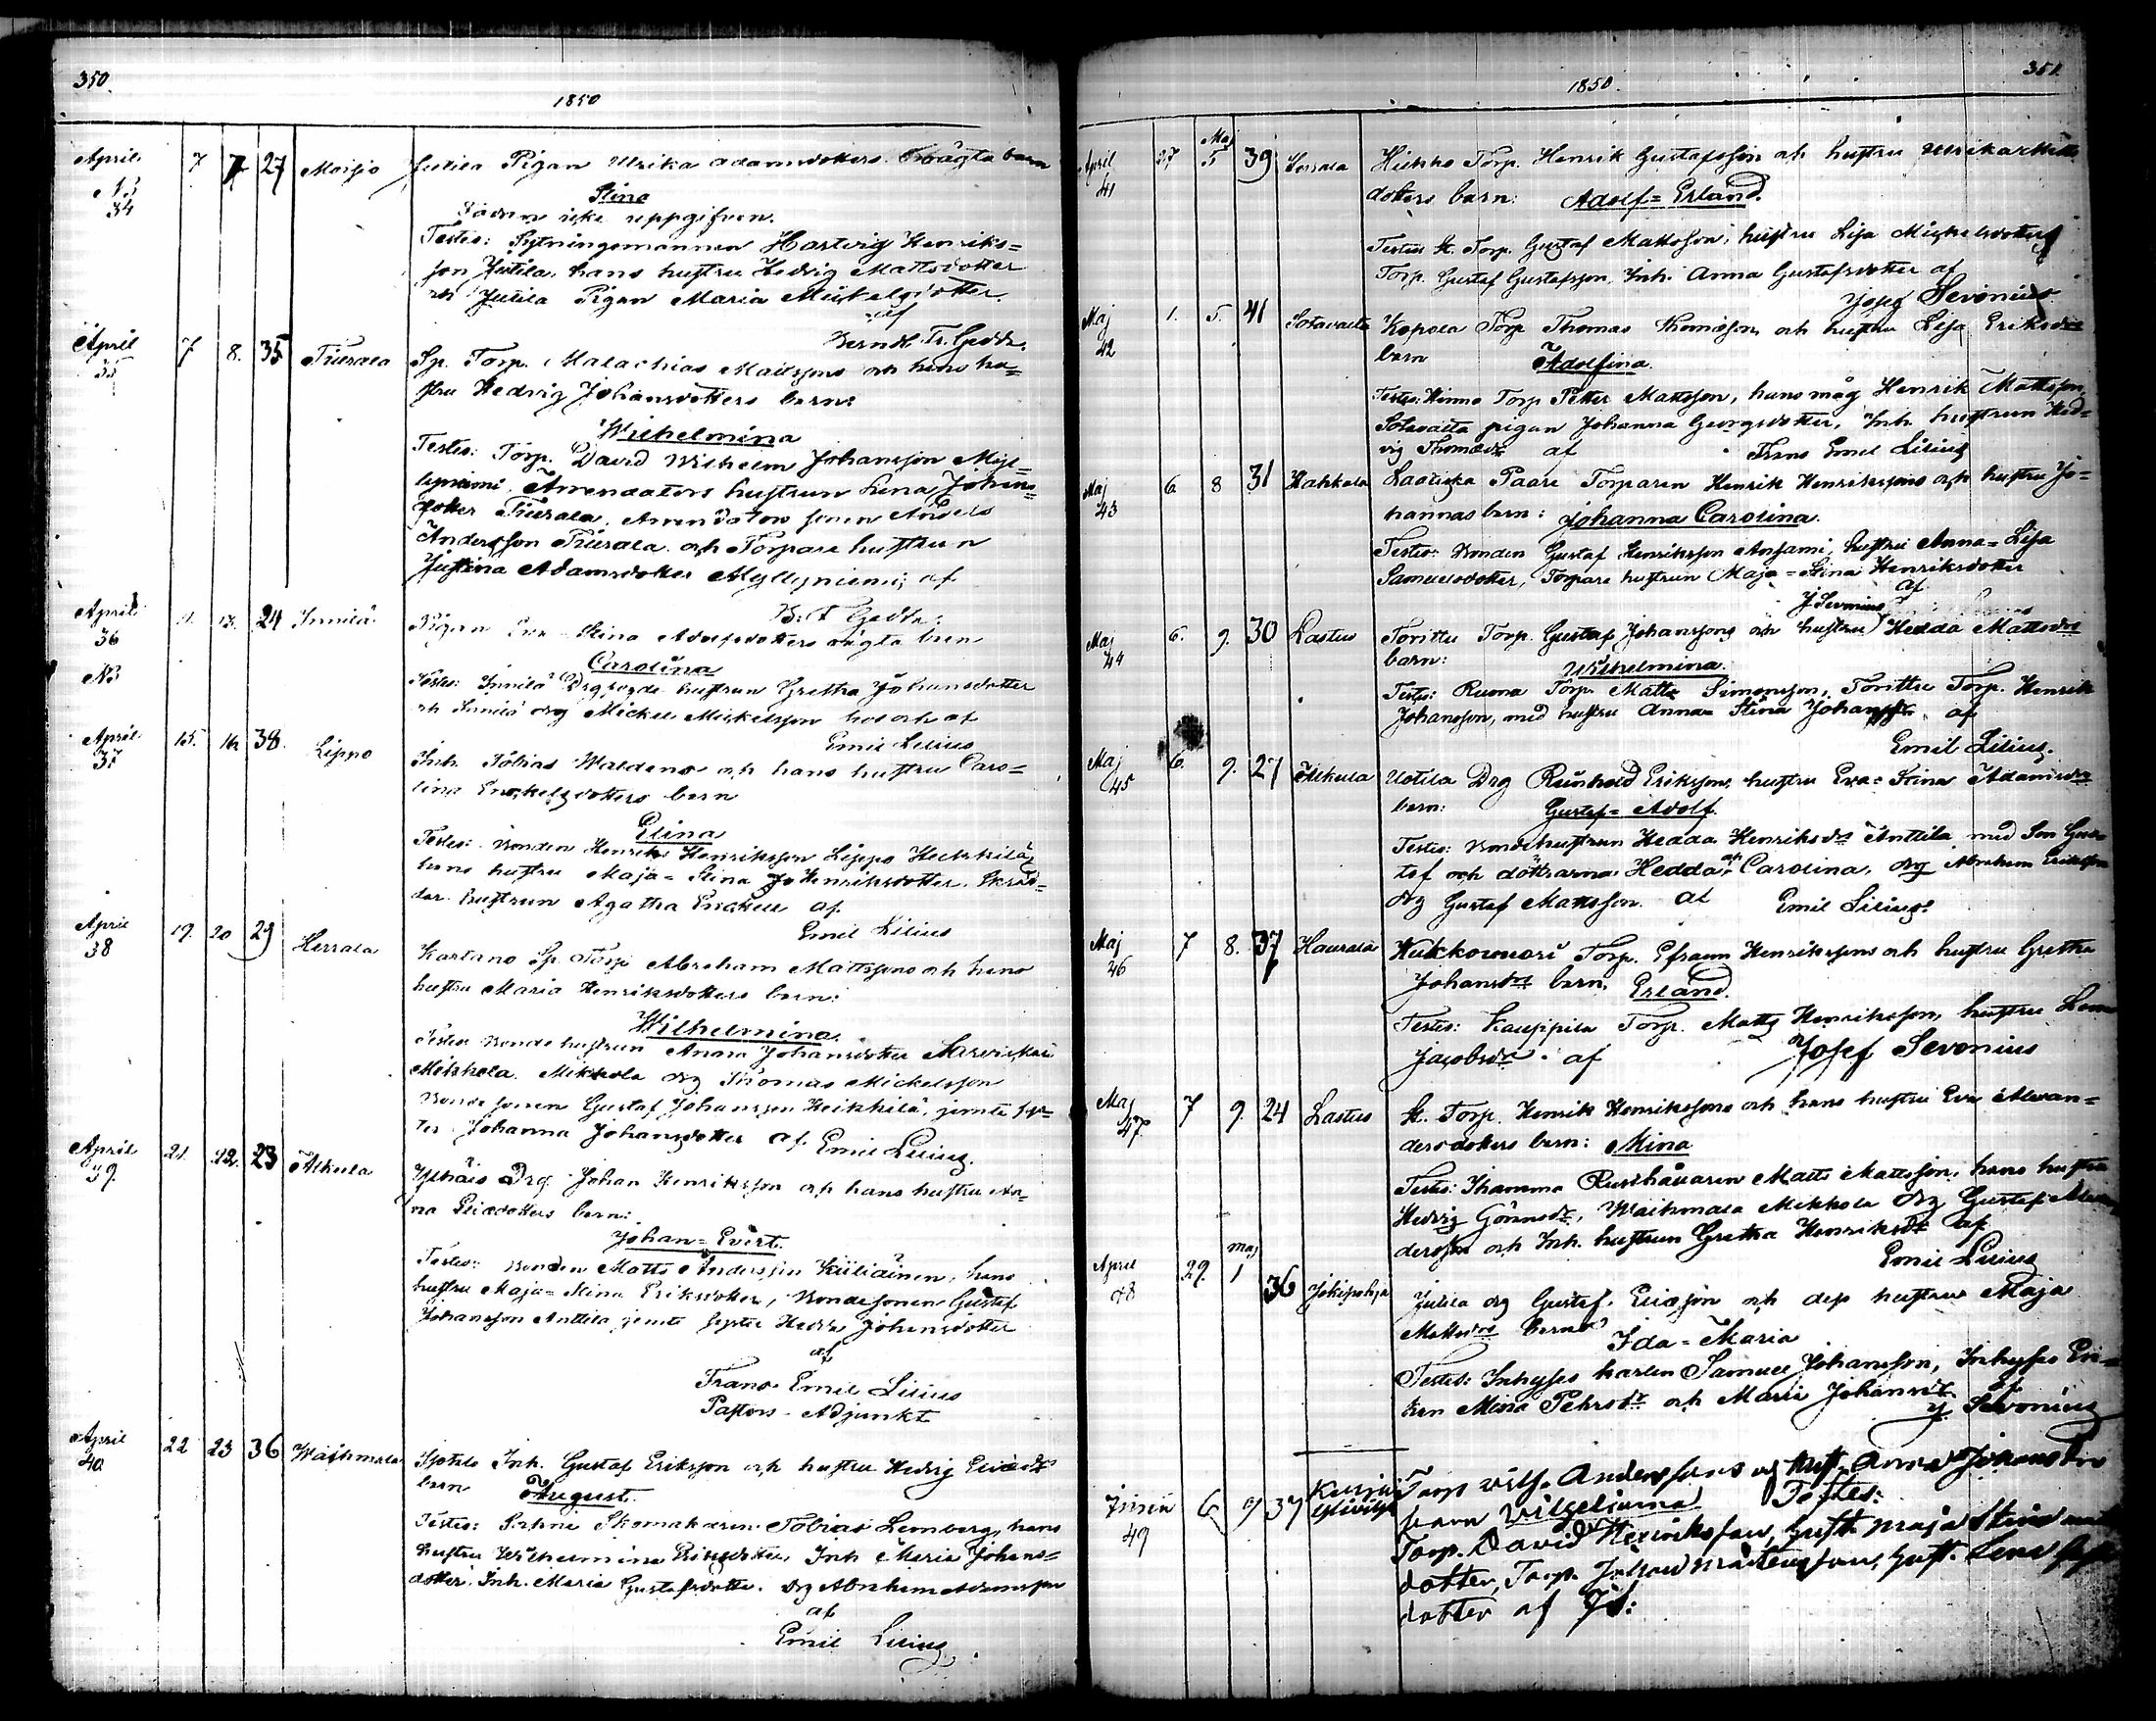 350.
1850
April 7 7 27 Moisio Jutila Pigan Ulrika Adamsdotters oägta barn
N3
34
Stina
Fadren icke uppgifven.
Testes: Sytningsmannen Hartvig Henriks=
son Jutila, hans hustru Hedvig Mattsdotter
och Jutila Pigan Maria Mickelsdotter.
af
Bernh. Fr. Gedda.
April 7 8. 35 Tiirala Sp. Torp. Malachias Mattssons och hans hu=
35
stru Hedvig Johansdotters barn:
Wilhelmina
Testes: Torp. David Wilhelm Johansson Myl=
lyniemi. Arrendators hustrun Lena Johans=
dotter Tiirala, Arrendators sonen Anders
Andersson Tiirala och Torpare hustrun
Justina Adamsdotter Myllyniemi, af
B. F. Gedda.
April 13. 24 Innilä Pigan Eva Stina Adolfsdotters oägta barn
36
Carolina
N3
Testes: Innilä Drg hustrun Gretha Johansdotter
och Innilä drg Mickel Mickelsson af
Emil Lilius
April 15. 16 38. Lippo Inh. Tobias Waldens och hans hustru Caro=
37
lina Enckelsdotters barn
Elina
Testes: Bonden Henrik Henriksson Lippo Heikkilä,
hans hustru Maja=Stina Henriksdotter. Skräd=
dar hustrun Agatha Enckell af
Emil Lilius
April 19. 20 29 Herrala Kartano Sp. Torp. Abraham Mattssons och hans
38
hustru Maria Henriksdotters barn:
Wilhelmina.
Testes Bonde hustrun Anna Johansdotter
Mikkola. Mikkola drg Thomas Mickelsson
Bonde sonen Gustaf Johansson Heikkilä, jemte sys=
ter Johanna Johansdotter af Emil Lilius.
April 21. 22. 23 Alkula Yhäis Drg Johan Henriksson och hans hustru An=
39.
na Eliædotters barn:
Johan=Evert.
Testes: Bonden Matts Andersson Kiiliäinen, hans
hustru Maja=Stina Eriksdotter, Bondesonen Gustaf
Johansson Anttila jemte syster Hedda Johansdotter
af
Frans Emil Lilius
Pastors-Adjunkt
April 22 23 36 Waihmala Inh. Gustaf Eriksson och hustru Hedvig Eliædr
40
barn August.
Testes: Skomakaren Tobias Lemberg, hans
hustru Wilhelmina Inh Maria Johans=
dotter. Inh. Maria Gustafsdotter. drg Abraham Adamsson
af
Emil Lilius
351.
1850.
April 27 Maj 5 39 Herrala Torp. Henrik Gustafsson och hustru Ulrika Matts
41
dotters barn: Adolf=Erland.
Testes St. Torp. Gustaf Mattsson, hustru Lisa Mickelsdotter,
Torp. Gustaf Gustafsson, Inh. Anna Gustafsdotter af
Josef Sevonius
Maj 1. 5. 41 Sotavalta Kopsla Torp Thomas Thomassons och hustru Lisa Eriksdrs
42
barn Adolfina.
Testes: Torp Petter Mattsson, hans måg Henrik Mattsson,
Sotavalta pigan Johanna Georgsdotter, Inh. hustrun Hed=
vig Thomædr af Frans Emil Lilius
Maj 6 8 31 Hahkala Laatiska Paare Torparen Henrik Henrikssons och hustru Jo=
43
hannas barn: Johanna Carolina.
Testes: Bonden Gustaf Henriksson Ansami, hustru Anna=Lisa
Samuelsdotter, Torpare hustrun Maja=Stina Henriksdotter
af
J Sevonius
Maj 6. 9. 30 Lastus Torittu Torp. Gustaf Johanssons och hustru Hedda Mattsdrs
44
barn: Wilhelmina.
Testes: Ruona Torp. Matts Simonsson, Torittu Torp. Henrik
Johansson, med hustru Anna=Stina Johansdr. af
Emil Lilius.
Maj 6. 9. 27 Alkula Uotila Drg Reinhold Erikssons, hustru Eva=Stina Adamsdrs
45
barn: Gustaf=Adolf.
Testes: Bondehustrun Hedda Henriksdr Anttila med Son Gus=
taf och döttrarna Hedda och Carolina, drg Abraham Eriksson
drg Gustaf Mattsson. af Emil Lilius.
Maj 7 8. 37 Haurala Kukkoinori Torp. Efraim Henrikssons och hustru Gretha
46
Johansdrs barn. Erland.
Testes: Kauppila Torp. Matts Henriksson, hustru Lena
Jacobsdr. af Josef Sevonius
Maj 7 9. 24 Lastus St. Torp. Henrik Henrikssons och hans hustru Eva Alexan=
47.
dersdotters barn: Mina
Testes: Ihamma Rusthållaren Matts Mattsson, hans hustru
Hedvig Göransdr, Waihmala Mikkola drg Gustaf Alexan=
dersson och Inh. hustrun Gretha Henriksdr af
Emil Lilius
April 29. maj 1 36 Jokipohja Jutila drg Gustaf Eliæson och dess hustru Maja
48
Mattsdrs barn Ida=Maria
Testes: Inhyses karlen Samuel Johansson, Inhyses En=
kan Mina Pehrsdr och Maria Johansdr. af
J Sevonius
Junii 6 9 37 Torp Wilh. Anderssons och hust. Anna Johansdrs
49
barn Vilhelmina Testes:
Torp. David Henriksson, hust. Maja Stina
dotter, Torp. Johan Mårtensson, hust. Lena
dotter af JS: